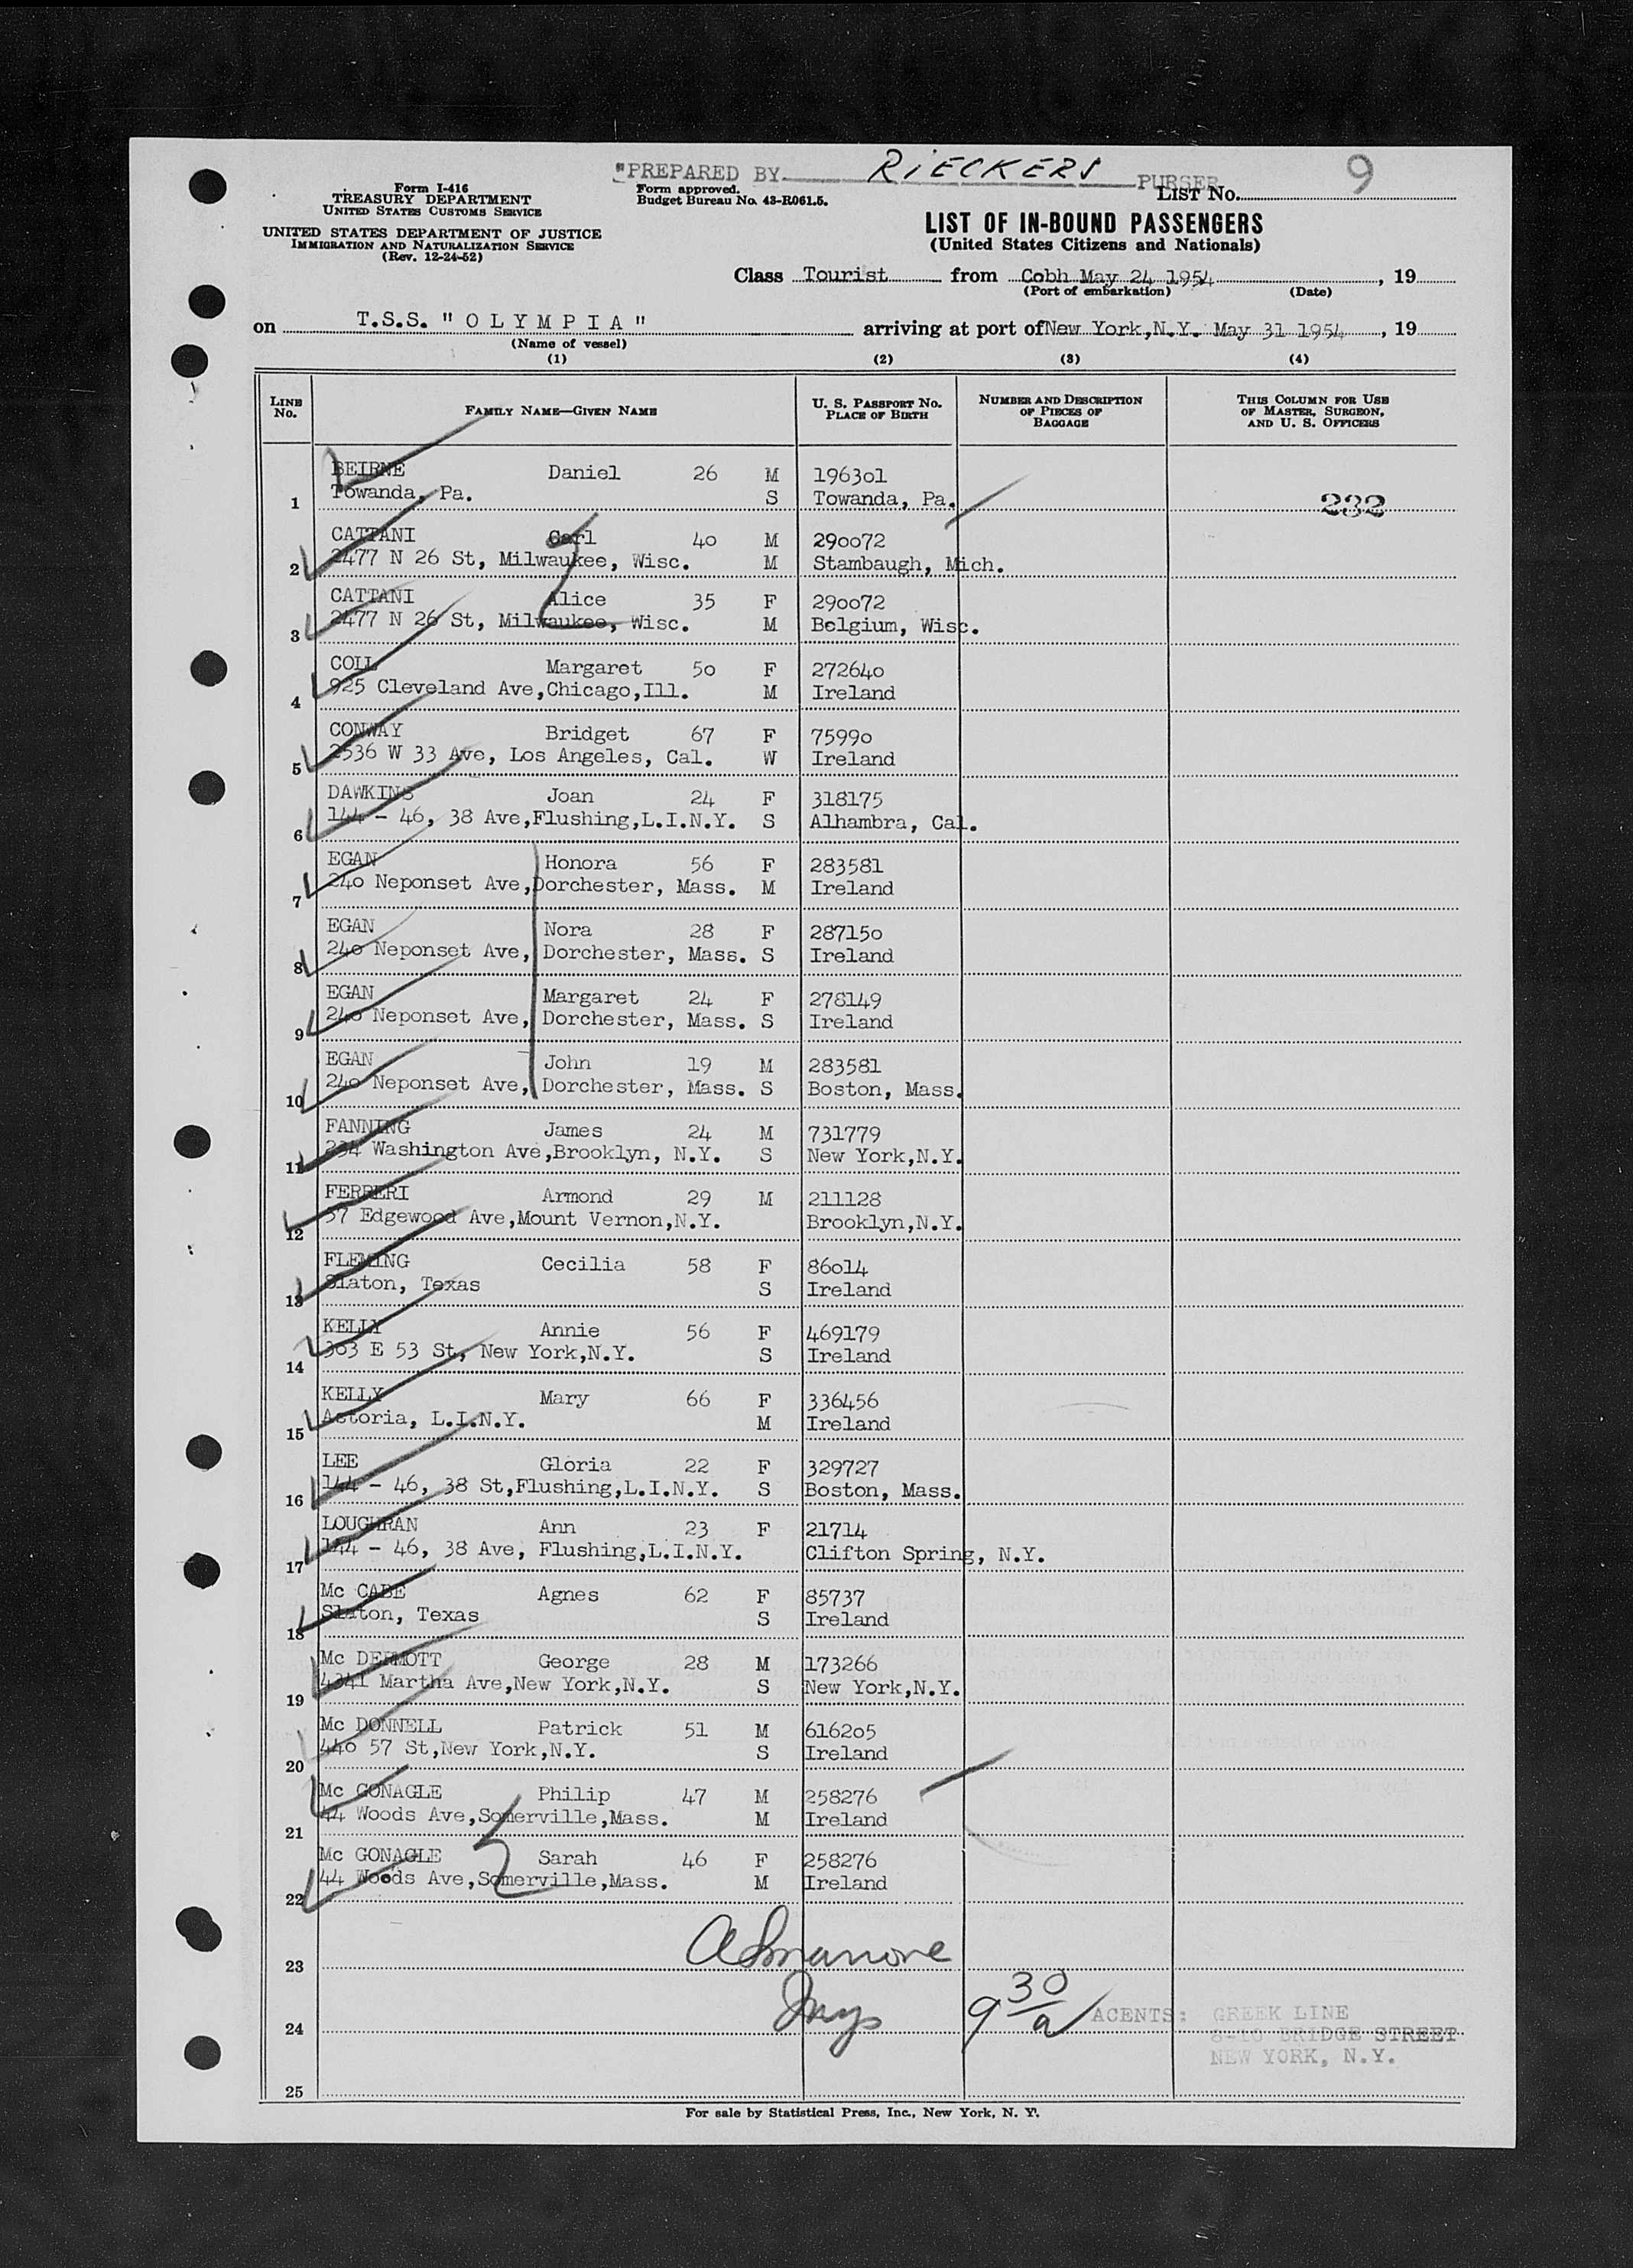 "PREPARED BY RiECKERS PURSER
Form I-416
TREASURY DEPARTMENT
UNITED STATES CUSTOMS SERVICE
UNITED STATES DEPARTMENT OF JUSTICE
IMMIGRATION AND NATURALIZATION SERVICE
(Rev. 12-24-52)
Form approved.
Budget Bureau No. 43-R061.5.
LIST No. 9
LIST OF IN-BOUND PASSENGERS
(United States Citizens and Nationals)
Class Tourist from Cobh May 24 1954, 19
(Port of embarkation) (Date)
on T.S.S. "OLYMPIA" arriving at port of New York,N.Y. May 31 1954, 19
(Name of vessel)
(1) (2) (3) (4)
LINE No. FAMILY NAME—GIVEN NAME U. S. PASSPORT No. PLACE OF BIRTH NUMBER AND DESCRIPTION OF PIECES OF BAGGAGE THIS COLUMN FOR USE OF MASTER, SURGEON, AND U. S. OFFICERS
BEIRNE Daniel 26 M 196301
1 Towanda, Pa. S Towanda, Pa. 232
CATTANI Carl 40 M 290072
2 2477 N 26 St, Milwaukee, Wisc. M Stambaugh, Mich.
CATTANI Alice 35 F 290072
3 2477 N 26 St, Milwaukee, Wisc. M Belgium, Wisc.
COLL Margaret 50 F 272640
4 925 Cleveland Ave,Chicago,Ill. M Ireland
CONWAY Bridget 67 F 75990
5 2536 W 33 Ave, Los Angeles, Cal. W Ireland
DAWKINS Joan 24 F 318175
6 144 - 46, 38 Ave,Flushing,L.I.N.Y. S Alhambra, Cal.
EGAN Honora 56 F 283581
7 240 Neponset Ave,Dorchester, Mass. M Ireland
EGAN Nora 28 F 287150
8 240 Neponset Ave, Dorchester, Mass. S Ireland
EGAN Margaret 24 F 278149
9 240 Neponset Ave, Dorchester, Mass. S Ireland
EGAN John 19 M 283581
10 240 Neponset Ave, Dorchester, Mass. S Boston, Mass.
FANNING James 24 M 731779
11 234 Washington Ave,Brooklyn, N.Y. S New York,N.Y.
FERRERI Armond 29 M 211128
12 57 Edgewood Ave,Mount Vernon,N.Y. Brooklyn,N.Y.
FLEMING Cecilia 58 F 86014
13 Slaton, Texas S Ireland
KELLY Annie 56 F 469179
14 303 E 53 St, New York,N.Y. S Ireland
KELLY Mary 66 F 336456
15 Astoria, L.I.N.Y. M Ireland
LEE Gloria 22 F 329727
16 144 - 46, 38 St,Flushing,L.I.N.Y. S Boston, Mass.
LOUGHRAN Ann 23 F 21714
17 144 - 46, 38 Ave, Flushing,L.I.N.Y. Clifton Spring, N.Y.
Mc CABE Agnes 62 F 85737
18 Slaton, Texas S Ireland
Mc DERMOTT George 28 M 173266
19 4341 Martha Ave,New York,N.Y. S New York,N.Y.
Mc DONNELL Patrick 51 M 616205
20 440 57 St,New York,N.Y. S Ireland
Mc GONAGLE Philip 47 M 258276
21 44 Woods Ave,Somerville,Mass. M Ireland
Mc GONAGLE Sarah 46 F 258276
22 44 Woods Ave,Somerville,Mass. M Ireland
23
24 9 30/a AGENTS: GREEK LINE
8-10 BRIDGE STREET
NEW YORK, N.Y.
25
For sale by Statistical Press, Inc., New York, N. Y.